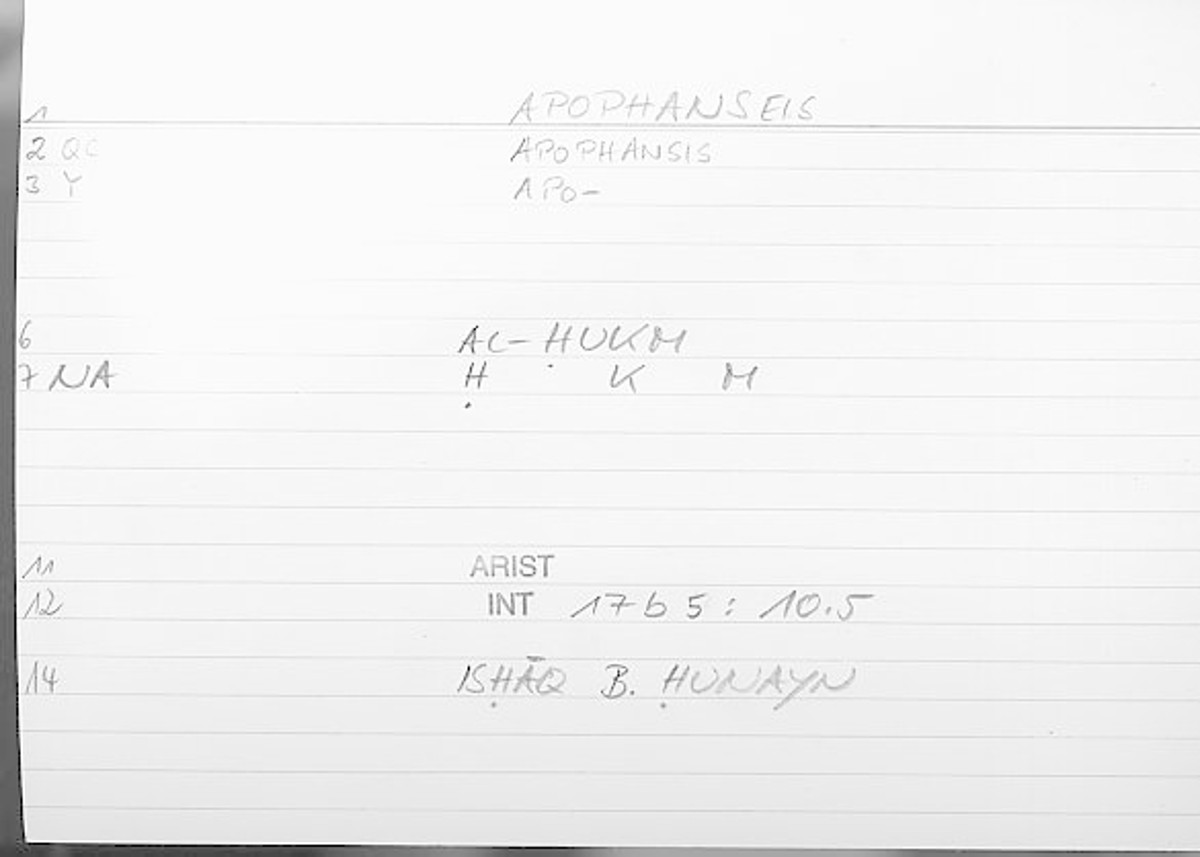 1 APOPHANSEIS
2 QC APOPHANSIS
3 Y APO-
6 AL-ḤUKM
7 NA Ḥ K M
11 ARIST
12 INT 17b 5 : 10.5
14 ISḤĀQ B. ḤUNAYN